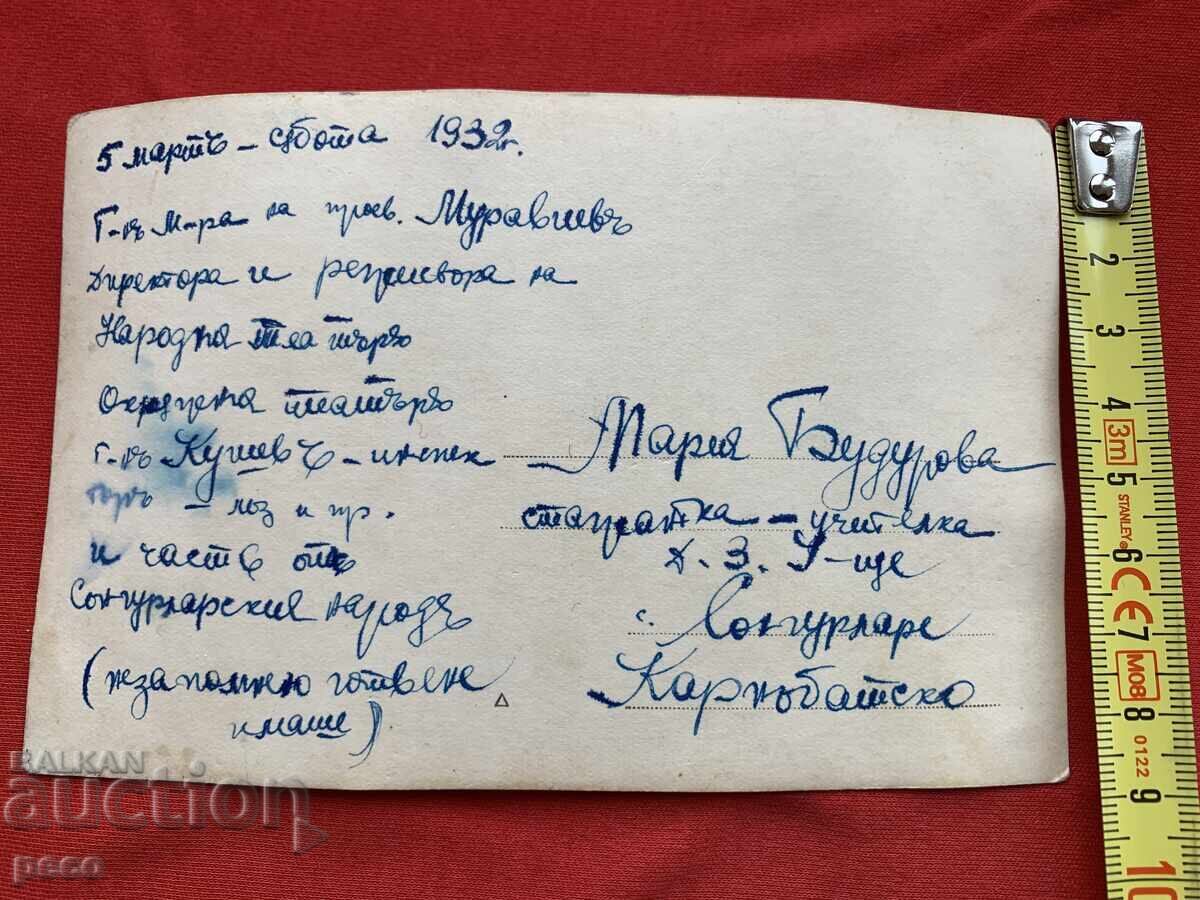 5 мартъ – събота 1932 г.
Г-нъ М-ра на просв. Муравиевъ
Директора и режисьора на
Народния театъръ
театъръ
г-нъ Кушевъ – инспек
торъ – лоз и пр.
и часть отъ
Сонгурларския народъ
(незапомнено готвене
имаше)
Мария Будурова
стажантка – учителка
Д. З. У-ще
с. Сонгурларе
Карнобатско
BALKAN
auction
peco
2
3
4
3m
5
STANLEY®
6
CE
7
M08
8
0122
9
10